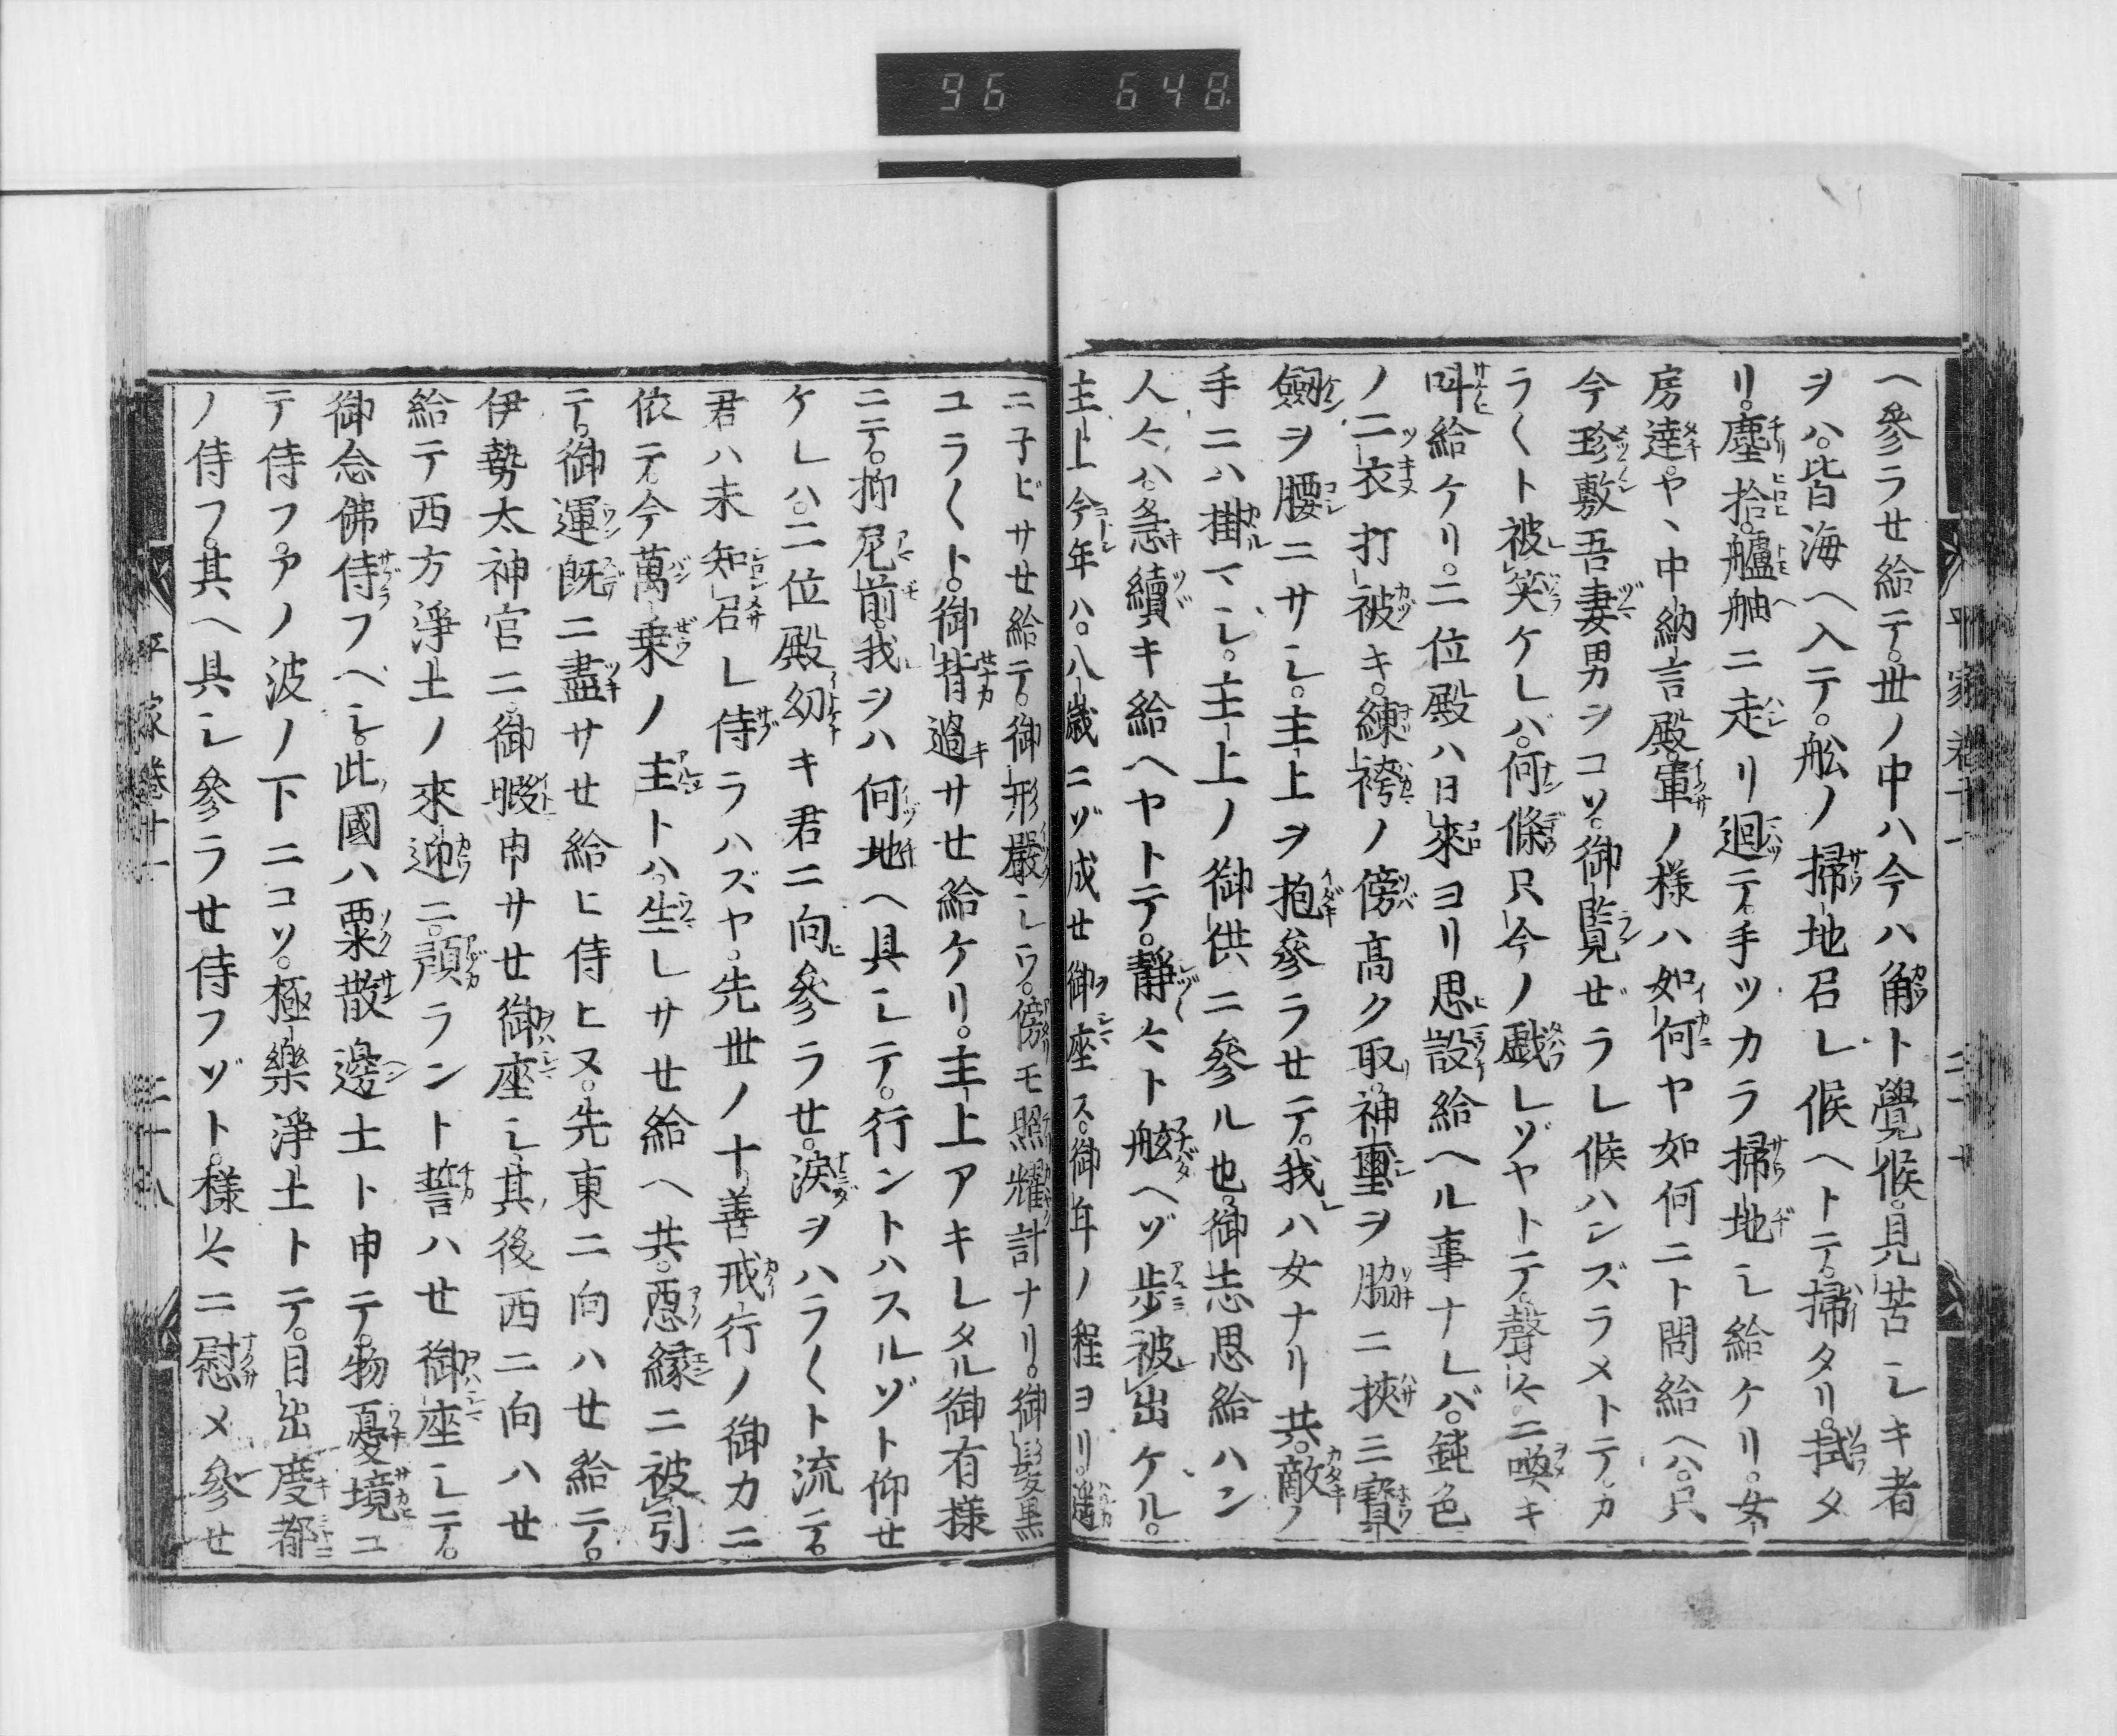 96 648
ヘ參ラせ給テ。世ノ中ハ今ハ角ト覺候。見苦シキ者
ヲハ。皆海ヘ入テ。舩ノ掃地召レ候ヘトテ。掃タリ。拭タ
リ。塵拾。艫舳ニ走リ迴テ。手ツカラ掃地シ給ケリ。女
房達ヤヽ中納言殿。軍ノ樣ハ如何ヤ如何ニト問給ヘハ。只
今珍敷吾妻男ヲコソ。御覽ぜラレ候ハンズラメトテ。カ
ラ〱ト被笑ケレバ。何條只今ノ戯レゾヤトテ。聲〻ニ喚キ
叫給ケリ。二位殿ハ日來ヨリ思設給ヘル事ナレバ。鈍色
ノ二衣打被キ。練袴ノ傍髙ク取。神璽ヲ脇ニ挾ミ寳
劔ヲ腰ニサシ。主上ヲ抱參ラせテ。我ハ女ナリ共。敵ノ
手ニハ掛マシ。主上ノ御供ニ參ル也。御志思給ハン
人〻ハ。急續キ給ヘヤトテ。靜〻ト舷ヘゾ歩被出ケル。
主上今年ハ。八歳ニゾ成せ御座ス。御年ノ程ヨリ。遙
ニ子ビサせ給テ。御形嚴シウ。傍モ照耀計ナリ。御髮黒
ユラ〱ト。御背過サせ給ケリ。主上アキレタル御有樣
ニテ。抑尼前。我ヲハ何地ヘ具シテ。行ントハスルゾト仰せ
ケレハ。二位殿幼キ君ニ向參ラせ。涙ヲハラ〱ト流テ。
君ハ未知召レ侍ラハズヤ。先世ノ十善戒行ノ御力ニ
依テ。今萬乗ノ主トハ。生レサせ給ヘ共。惡縁ニ被引
テ。御運既ニ盡サせ給ヒ侍ヒヌ。先東ニ向ハせ給テ。
伊勢太神官ニ。御暇申サせ御座シ。其後西ニ向ハせ
給テ西方淨土ノ來迎ニ。預ラント誓ハせ御座シテ。
御念佛侍フヘシ。此國ハ粟散邊土ト申テ。物憂境ニ
テ侍フ。アノ波ノ下ニコソ。極樂淨土トテ。目出度都
ノ侍フ。其ヘ具シ參ラせ侍フゾト。樣〻ニ慰メ參せ
平家卷十一
平家卷十一 二十八